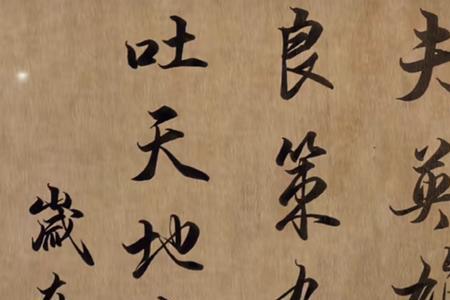 夫英雄
良策
吐天地
歲